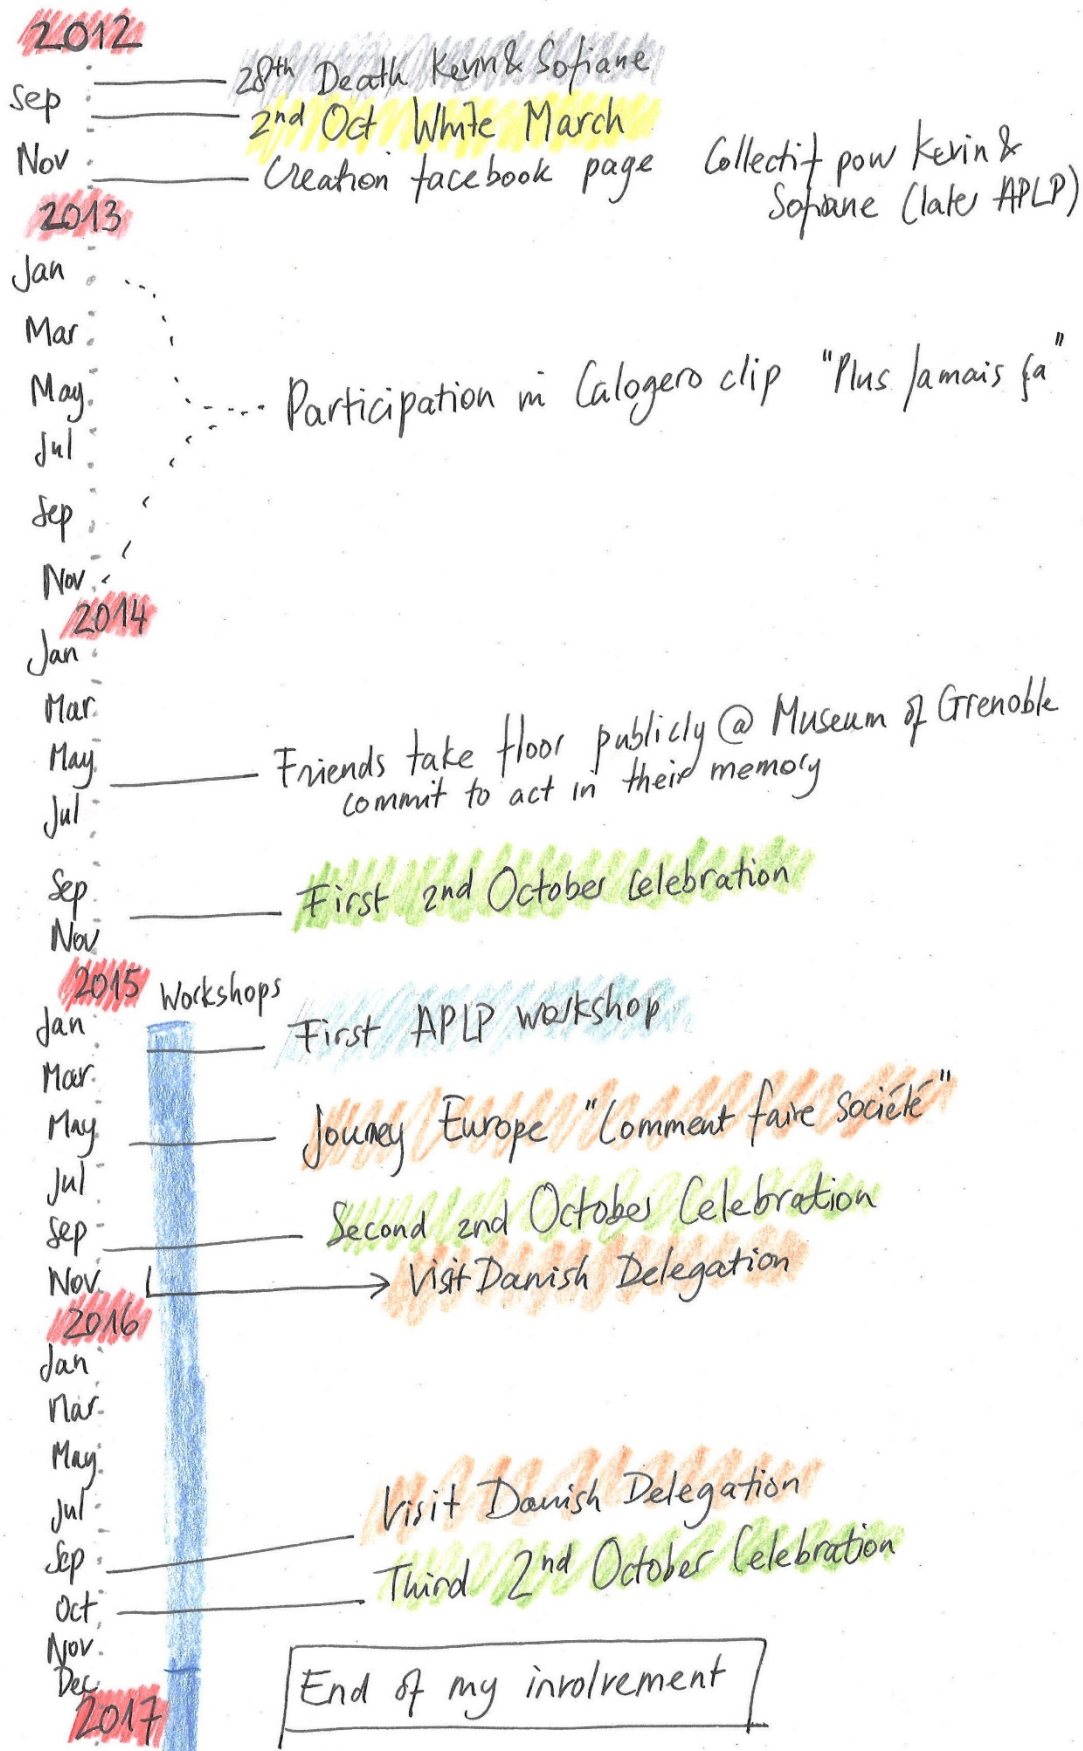 2012
Sep
28th Death Kevin & Sofiane
2nd Oct White March
Nov
Creation facebook page Collectif pour Kevin &
Sofiane (later APLP)
2013
Jan
Mar
May
Participation in Calogero clip "Plus Jamais ça"
Jul
Sep
Nov
2014
Jan
Mar
May
Friends take floor publicly @ Museum of Grenoble
commit to act in their memory
Jul
Sep
First 2nd October Celebration
Nov
2015 Workshops
Jan
First APLP workshop
Mar
May
Journey Europe "Comment faire société"
Jul
Sep
Second 2nd October Celebration
Nov
Visit Danish Delegation
2016
Jan
Mar
May
Jul
Visit Danish Delegation
Sep
Third 2nd October Celebration
Oct
Nov
Dec
End of my involvement
2017